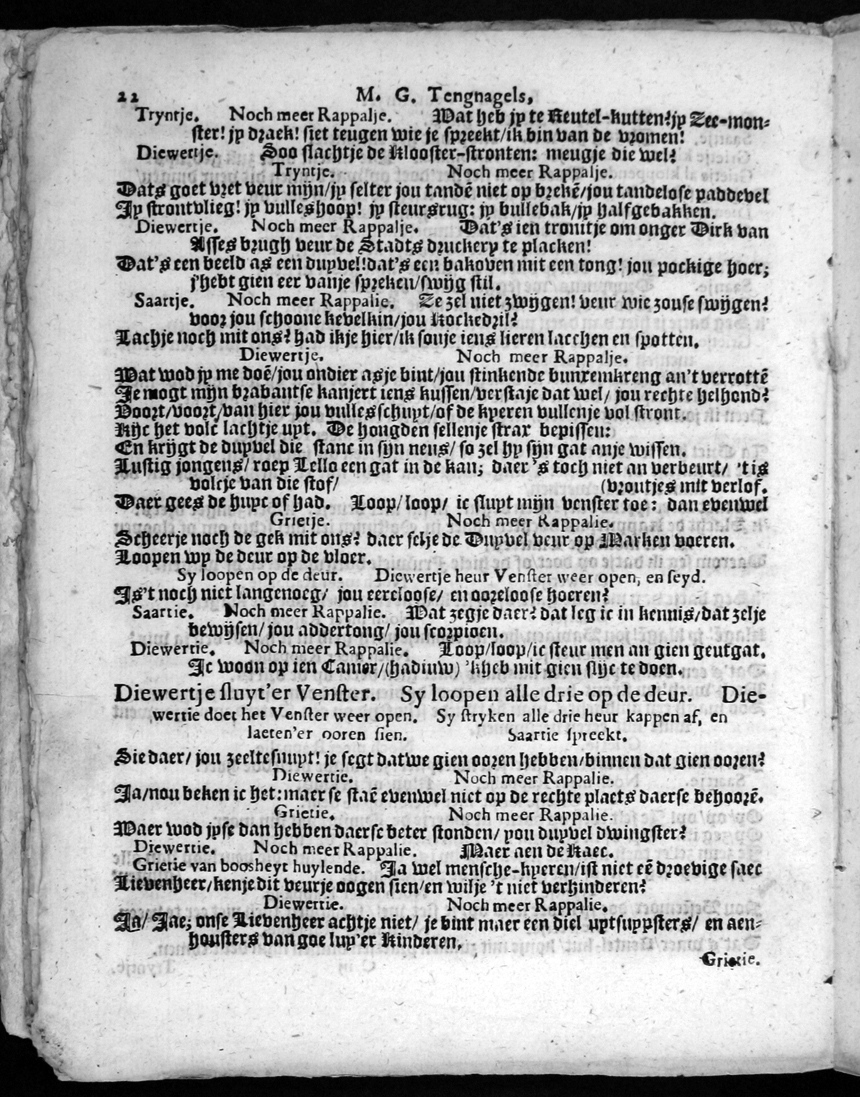 22 M. G. Tengnagels,
Tryntje. Noch meer Rappalje. Wat heb jy te Keutel-kutten? jy Zee-mon-
ster! jy draek! siet teugen wie je spreekt/ik bin van de vromen!
Diewertje. Soo slachtje de Klooster-stronten: meugje die wel?
Tryntje. Noch meer Rappalje.
Dats goet vret veur mijn/jy selter jou tandē niet op brekē/jou tandelose paddevel
Jy strontvlieg! jy vulleshoop! jy steursrug: jy bullebak/jy halfgebakken.
Diewertje. Noch meer Rappalje. Dat's ien tronitje om onger Dirk van
Asses brugh veur de Stadts druckery te placken!
Dat's een beeld as een duyvel! dat's een bakoven mit een tong! jou pockige hoer;
j'hebt gien eer vanje spreken/swijg stil.
Saartje. Noch meer Rappalie. Ze zel niet zwygen! veur wie zouse swijgen?
voor jou schoone kevelkin/jou Kockedril?
Lachje noch mit ons? had ikje hier/ik souje iens lieren lacchen en spotten.
Diewertje. Noch meer Rappalje.
Wat wod jy me doē/jou ondier asje bint/jou stinkende bunxemkreng an't verrottē
Je mogt mijn brabantse kanjert iens kussen/verstaje dat wel/ jou rechte helhond?
Voort/voort/van hier jou vullesschuyt/of de kyeren vullenje vol stront.
Kijc het volc lachtje uyt. De hongden sellenje strax bepissen:
En krijgt de duyvel die stanc in sijn neus/ so zel hy sijn gat anje wissen.
Lustig jongens/ roep Lello een gat in de kan; daer 's toch niet an verbeurt/ 'tis
voltje van die stof/ (vrontjes mit verlof.
Daer gees de huyc of had. Loop/loop/ ic sluyt mijn venster toe: dan evenwel
Grietje. Noch meer Rappalie.
Scheerje noch de gek mit ons? daer selje de Duyvel veur op Marken voeren.
Loopen wy de deur op de vloer.
Sy loopen op de deur. Diewertje heur Venster weer open, en seyd.
Is't noch niet langenoeg/ jou eereloose/ en oorelooose hoeren?
Saartie. Noch meer Rappalie. Wat zegje daer? dat leg ic in kennis/dat zelje
bewijsen/ jou addertong/ jou scorpioen.
Diewertie. Noch meer Rappalie. Loop/loop/ic steur men an gien geutgat.
Ic woon op ien Camer/(hadiuw) 'kheb mit gien slijc te doen.
Diewertje sluyt'er Venster. Sy loopen alle drie op de deur. Die-
wertie doet het Venster weer open. Sy stryken alle drie heur kappen af, en
laeten'er ooren sien. Saartie spreekt.
Sie daer/ jou zeeltesnuyt! je segt datwe gien ooren hebben/binnen dat gien ooren?
Diewertie. Noch meer Rappalie.
Ja/nou beken ic het: maer se staē evenwel niet op de rechte plaets daerse behoorē.
Grietie. Noch meer Rappalie.
Waer wod jyse dan hebben daerse beter stonden/ you duyvel dwingster?
Diewertie. Noch meer Rappalie. Maer aen de Kaec.
Grietie van boosheyt huylende. Ja wel mensche-kyeren/ist niet eē droevige saec
Lievenheer/kenje dit veurje oogen sien/en wilje 't niet verhinderen?
Diewertie. Noch meer Rappalie.
Ja/ Jae; onse Lievenheer achtje niet/ je bint maer een diel uytsuypsters/ en aen-
housters van goe luy'er Kinderen.
Grietie.